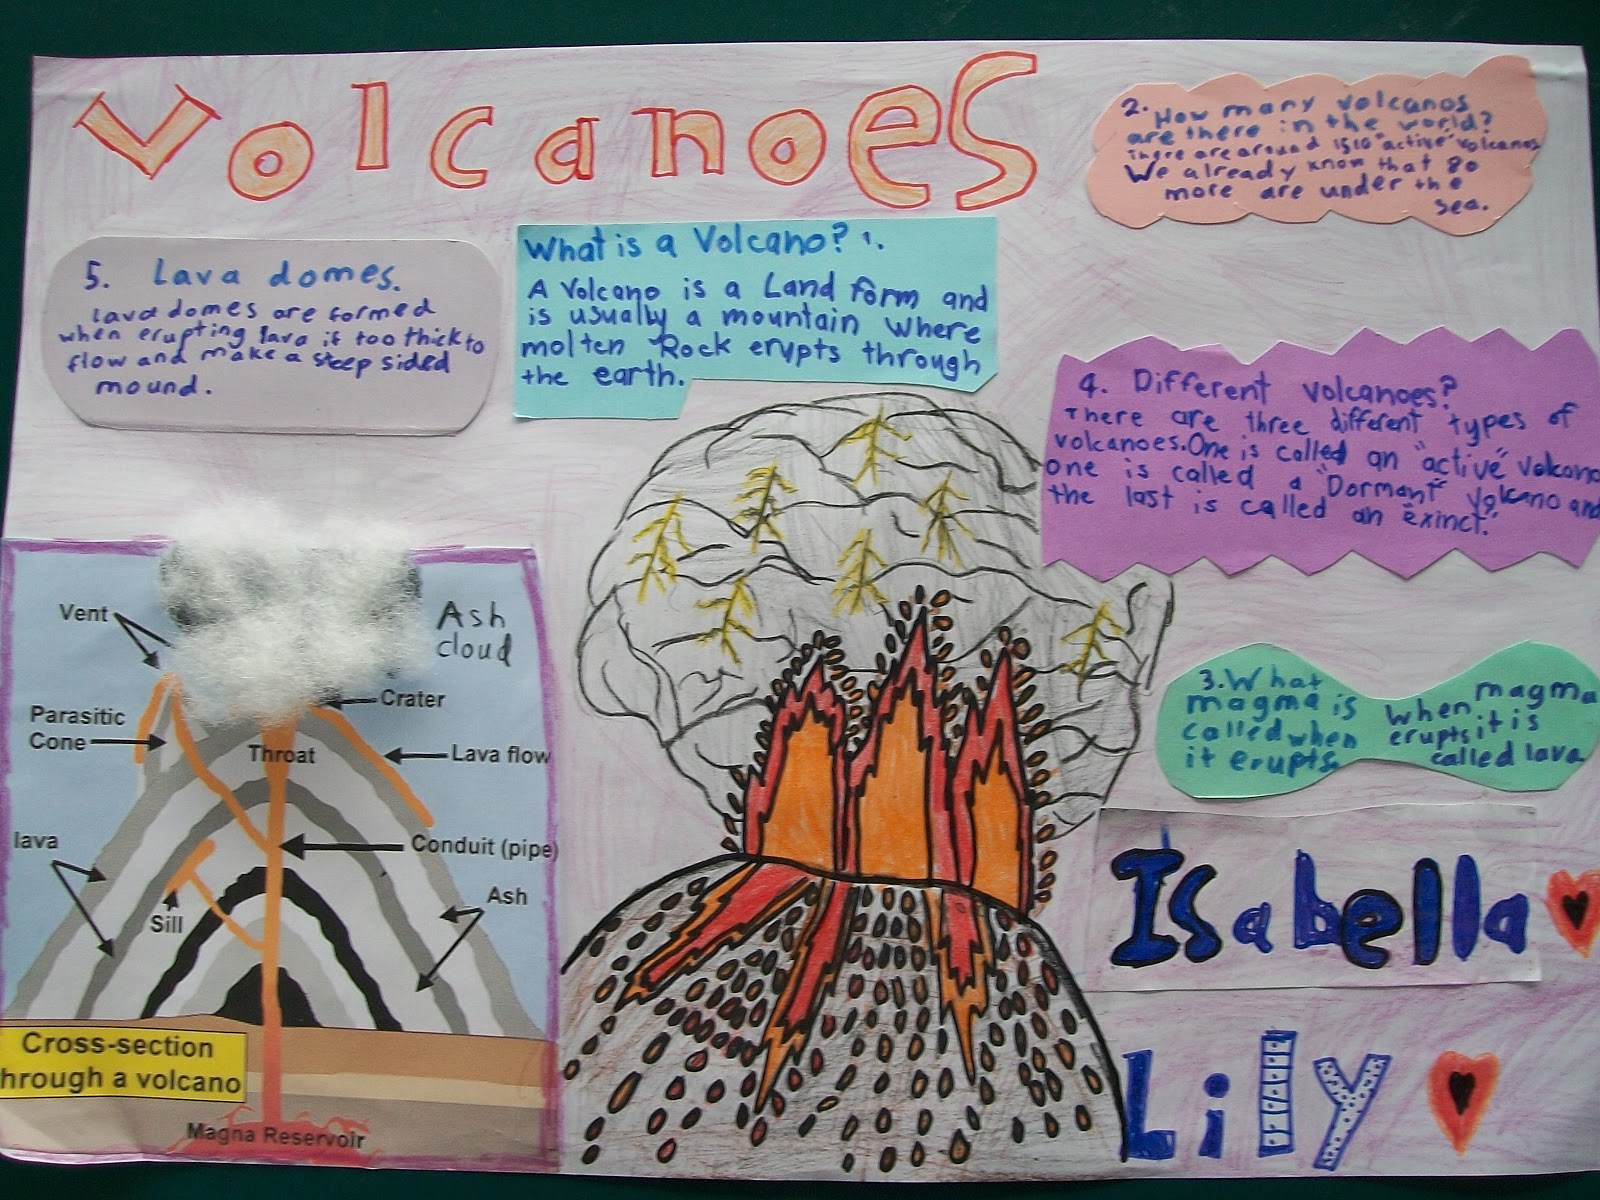 Volcanoes
What is a Volcano? 1.
A Volcano is a Land form and
is usually a mountain where
molten Rock erupts through
the earth.
2. How many volcanos
are there in the world?
There are around 1510 "active" volcanos
We already know that 80
more are under the
sea.
3. What
magma is
called when
it erupts
when magma
erupts it is
called lava
4. Different volcanoes?
There are three different types of
volcanoes. One is called an "active" volcano
one is called a "Dormant" volcano and
the last is called an "exinct".
5. Lava domes.
lava domes are formed
when erupting lava if too thick to
flow and make a steep sided
mound.
Ash
cloud
Vent
Crater
Parasitic
Cone
Throat
Lava flow
lava
Conduit (pipe)
Sill
Ash
Cross-section
hrough a volcano
Magna Reservoir
Isabella
Lily